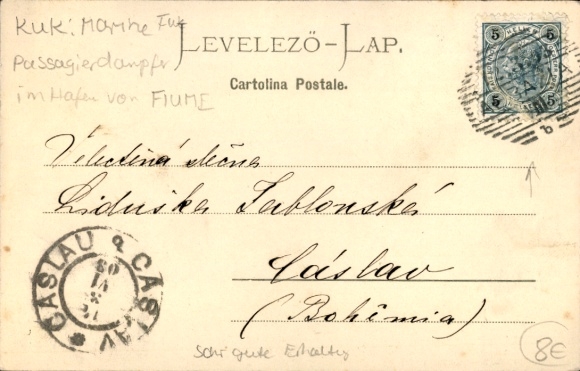 KuK: Marine
Passagierdampfer
im Hafen von FIUME
LEVELEZŐ-LAP.
Cartolina Postale.
5 5
5 5
Velectěná slečna
Liduška Jablonská
Čáslav
(Bohêmia)
CASLAU ČÁSLAV
Sehr gute Erhaltg
8€